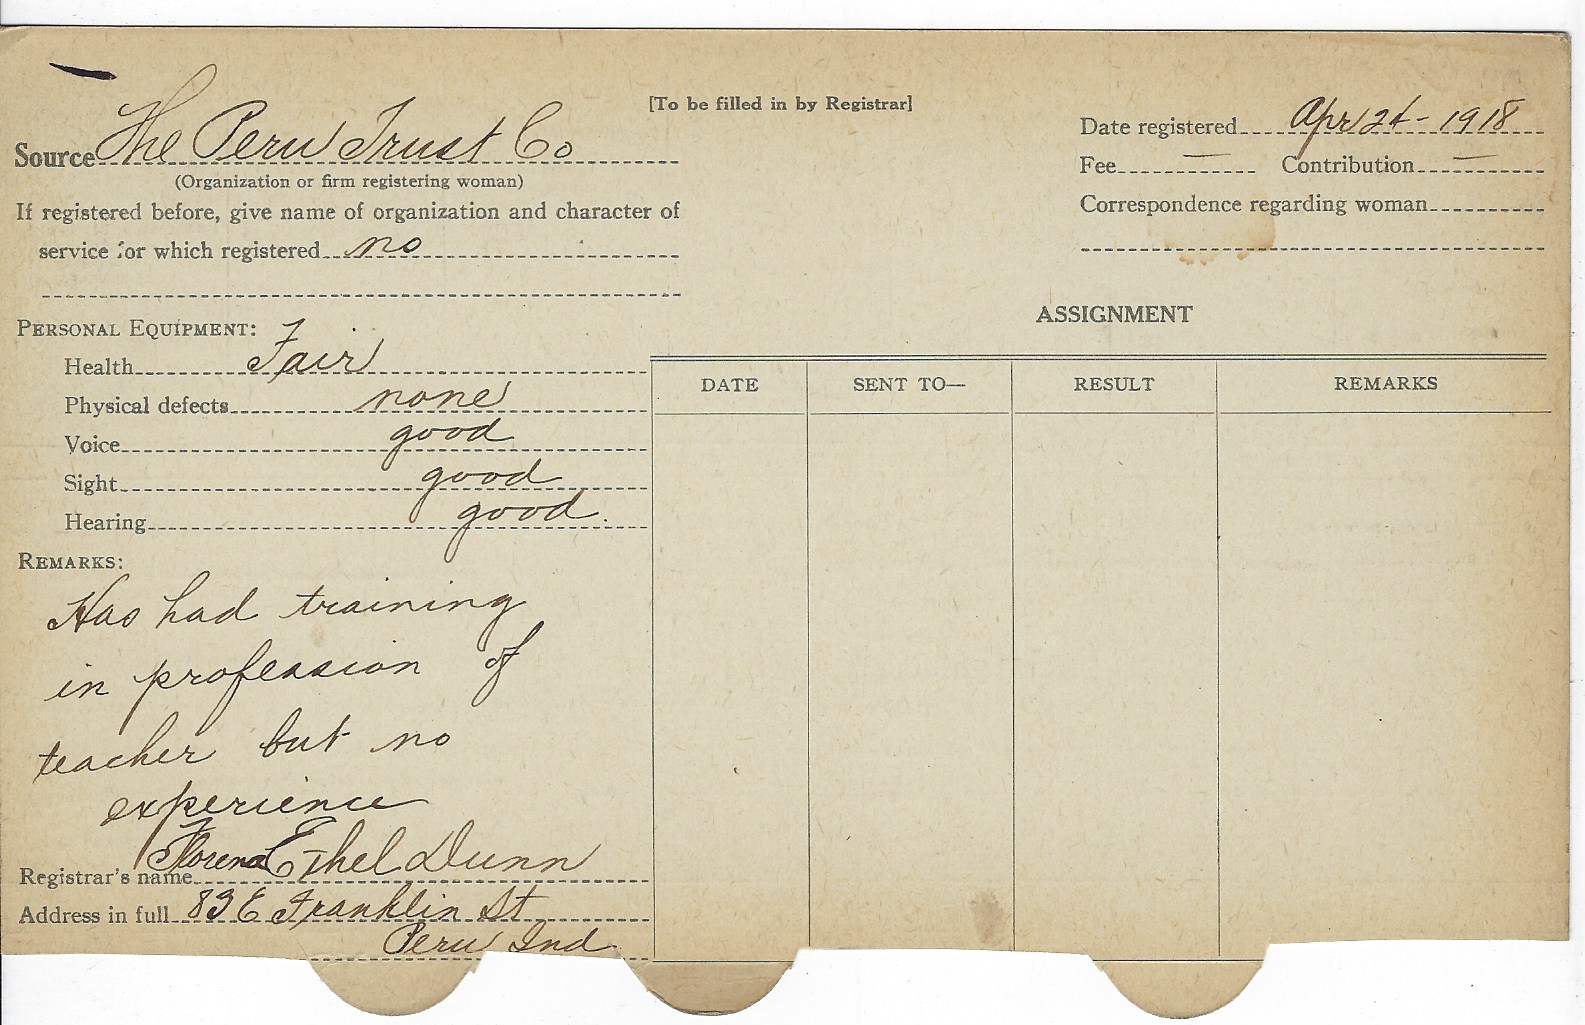 [To be filled in by Registrar]
Source The Peru Trust Co
(Organization or firm registering woman)
If registered before, give name of organization and character of
service for which registered no
Date registered Apr 24 - 1918
Fee — Contribution —
Correspondence regarding woman
PERSONAL EQUIPMENT:
Health Fair
Physical defects none
Voice good
Sight good
Hearing good.
REMARKS:
Has had training
in profession of
teacher but no
experience
Registrar's name Ethel Dunn
Address in full E Franklin St
Peru Ind
ASSIGNMENT
DATE SENT TO— RESULT REMARKS